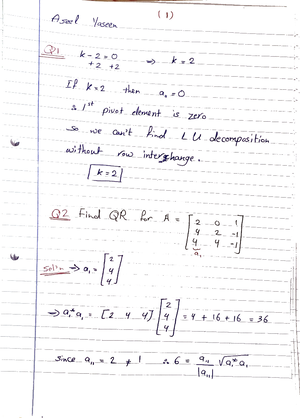 (1)
Aseel Yaseen
Q1 k - 2 = 0 ⇒ k = 2
+2 +2
If k = 2 then a₁ = 0
& 1st pivot element is zero
so we can't find LU decomposition
without row interchange.
k = 2
Q2 Find QR for A = [2 0 1
4 2 -1
4 4 -1]
a₁
sol'n → a₁ = [2
4
4]
→ a₁* a₁ = [2 4 4] [2
4
4] = 4 + 16 + 16 = 36
since a₁₁ = 2 ≠ 1 ∴ 6 = a₁₁/|a₁₁| √a₁* a₁